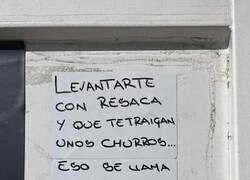 LEVANTARTE
CON RESACA
Y QUE TETRAIGAN
UNOS CHURROS...
ESO SE LLAMA